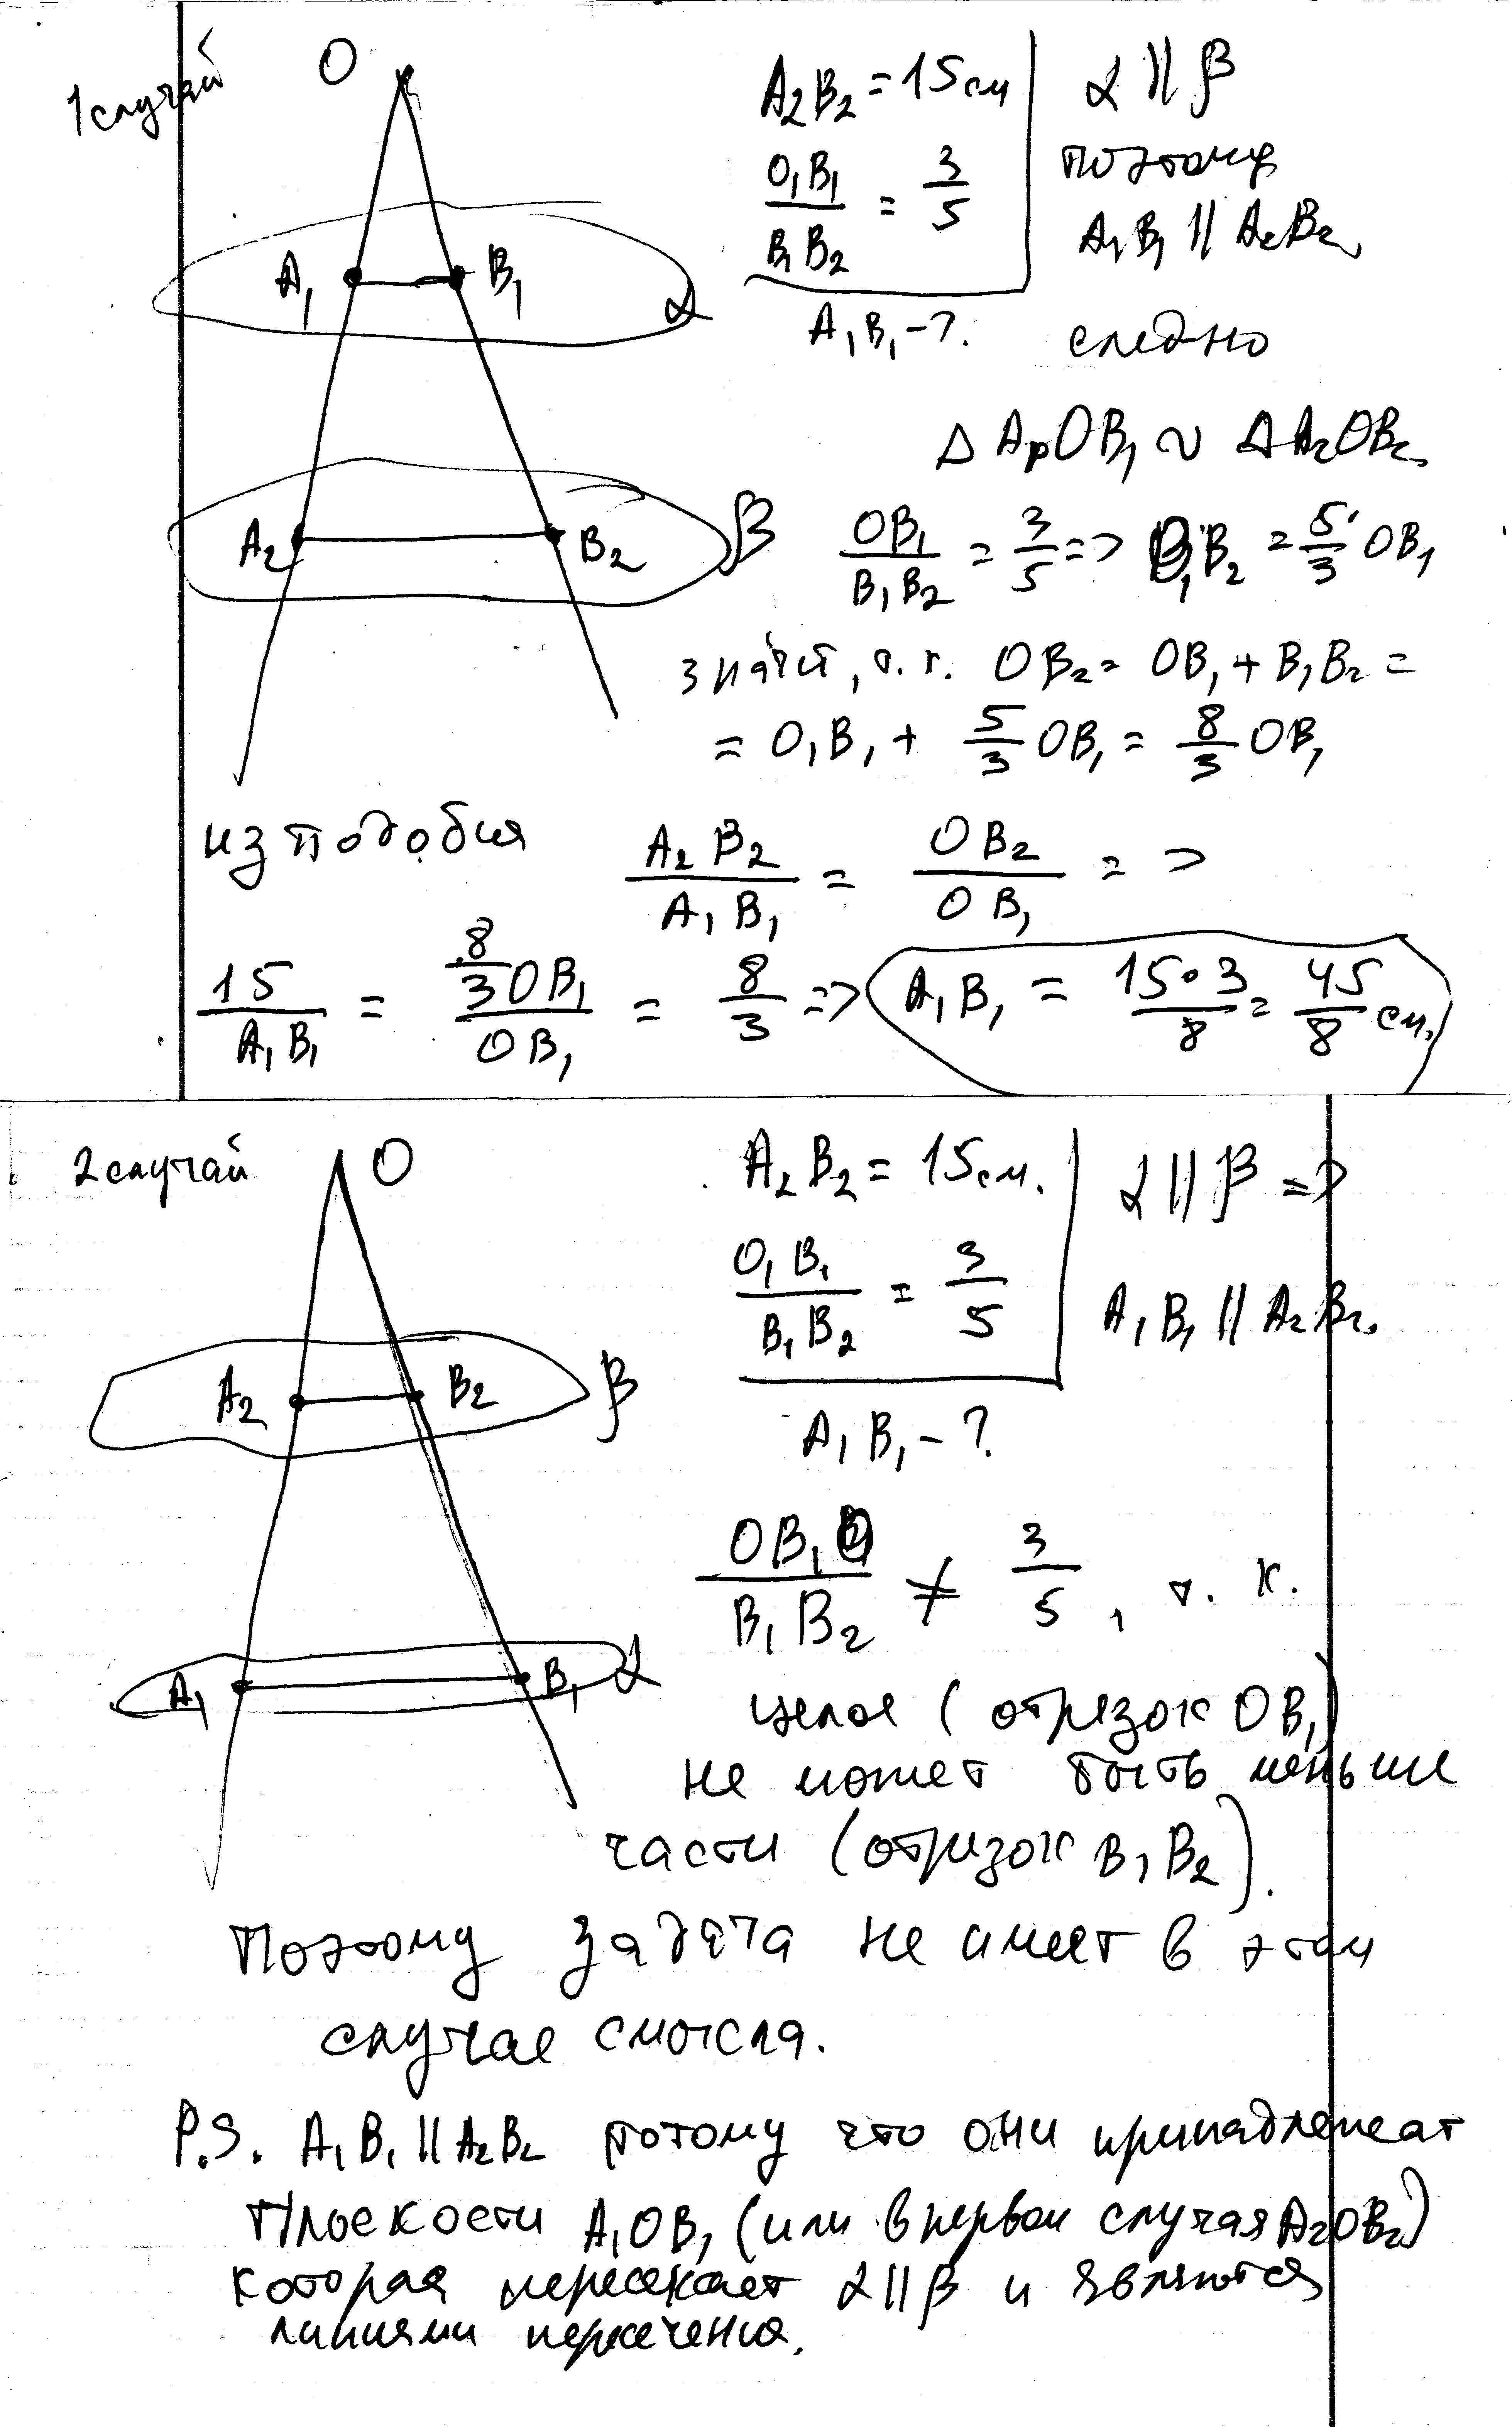 1 случай
O
A₂B₂ = 15 см
α || β
O₁B₁/B₁B₂ = 3/5
поэтому
A₁B₁ || A₂B₂,
A₁ B₁ α
A₁B₁ - ?.
следно
Δ A₁OB₁ ~ ΔA₂OB₂.
A₂ B₂ β
OB₁/B₁B₂ = 3/5 => B₁B₂ = 5/3 OB₁
значит, т.к. OB₂ = OB₁ + B₁B₂ =
= O₁B₁ + 5/3 OB₁ = 8/3 OB₁
из подобия A₂B₂/A₁B₁ = OB₂/OB₁ = >
15/A₁B₁ = 8/3 OB₁/OB₁ = 8/3 => A₁B₁ = 15·3/8 = 45/8 см.
2 случай
O
A₂B₂ = 15 см.
α || β =>
O₁B₁/B₁B₂ = 3/5
A₁B₁ || A₂B₂.
A₂ B₂ β
A₁B₁ - ?
OB₁/B₁B₂ ≠ 3/5, т. к.
A₁ B₁ α
целое (отрезок OB₁)
не может быть меньше
части (отрезок B₁B₂).
Поэтому задача не имеет в этом
случае смысла.
P.S. A₁B₁ || A₂B₂ потому что они принадлежат
плоскости A₁OB₁ (или в первом случая A₂OB₂)
которая пересекает α || β и являются
линиями пересечения.